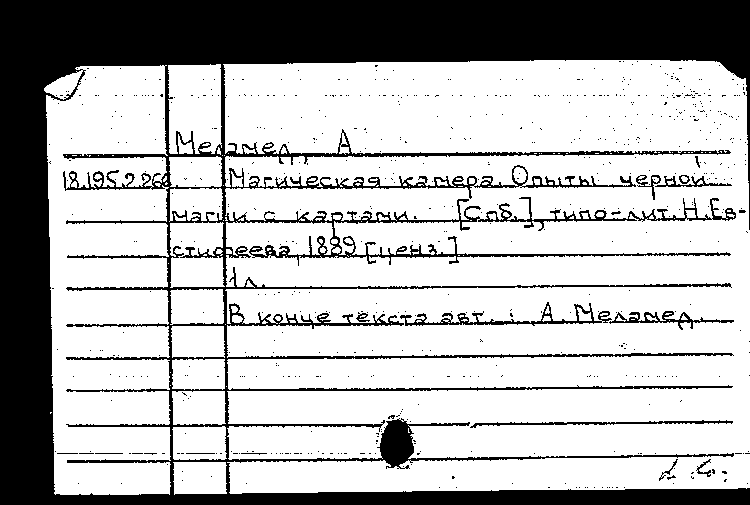 Меламед, А
18.195.2.266 Магическая камера. Опыты черной
магии с картами. [Спб.], типо-лит. Н. Ев-
стифеева, 1889 [ценз.]
1 л.
В конце текста авт.: А. Меламед.